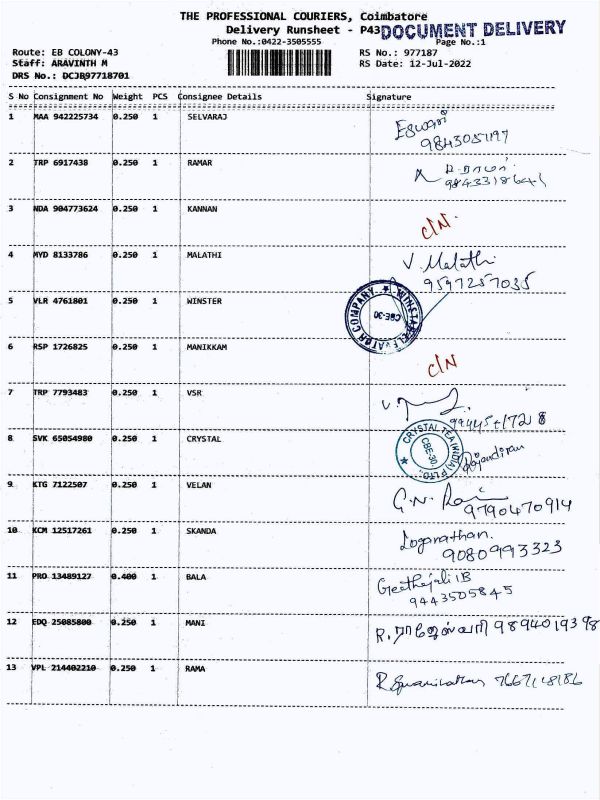 THE PROFESSIONAL COURIERS, Coimbatore
Delivery Runsheet - P43 DOCUMENT DELIVERY
Phone No.:0422-3505555 Page No.:1
Route: EB COLONY-43 RS No.: 977187
Staff: ARAVINTH M RS Date: 12-Jul-2022
DRS No.: DCJB97718701
S No Consignment No Weight PCS Consignee Details Signature
1 MAA 942225734 0.250 1 SELVARAJ Eswari
9843051197
2 TRP 6917438 0.250 1 RAMAR
3 NDA 904773624 0.250 1 KANNAN C/N.
4 MYD 8133786 0.250 1 MALATHI V. Malathi
9597257035
5 VLR 4761801 0.250 1 WINSTER WINSTAR ELEVATOR COMPANY CBE-30
6 RSP 1726825 0.250 1 MANIKKAM C/N
7 TRP 7793483 0.250 1 VSR
8 SVK 65054980 0.250 1 CRYSTAL CRYSTAL TEA (INDIA) P LTD. CBE-30. Rajendiran
9 KTG 7122507 0.250 1 VELAN G.N.
9790470914
10 KCM 12517261 0.250 1 SKANDA Loganathan.
9080993323
11 PRO 13489127 0.400 1 BALA Geethejali B
9443505845
12 EDQ 25085800 0.250 1 MANI R. ராஜேஸ்வரி 9894019398
13 VPL 214402210 0.250 1 RAMA